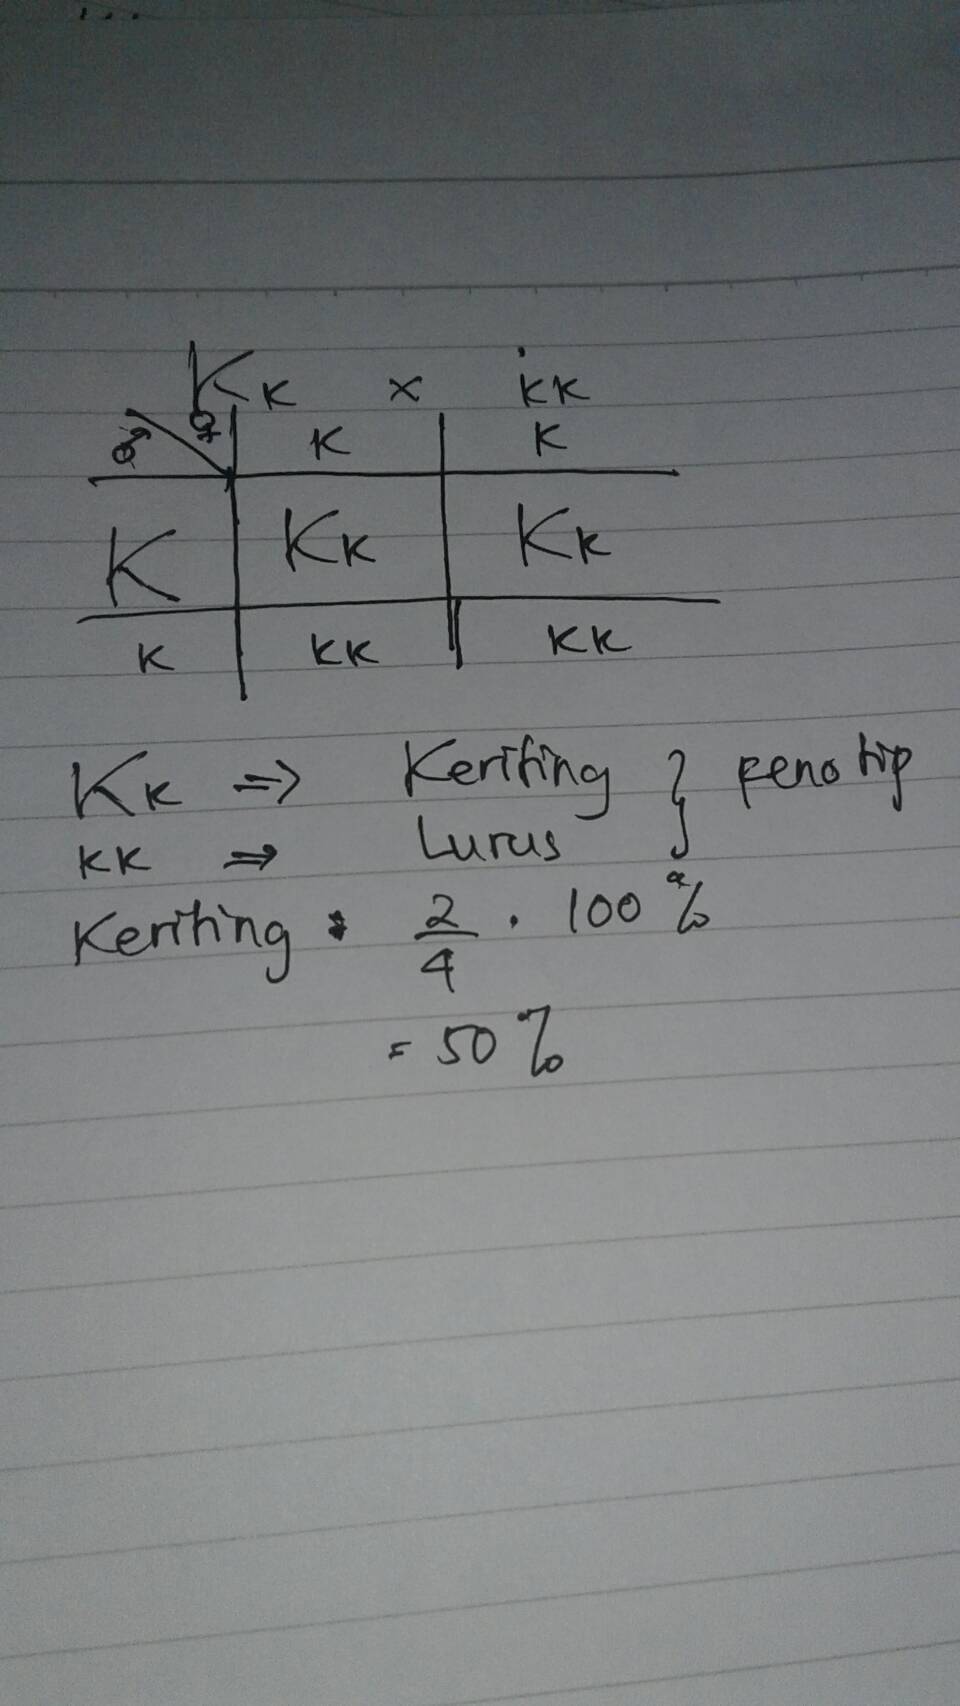 Kk x kk
♂ ♀ k k
K Kk Kk
k kk kk
Kk => Keriting } fenotip
kk => Lurus
Keriting : 2/4 . 100 %
= 50 %